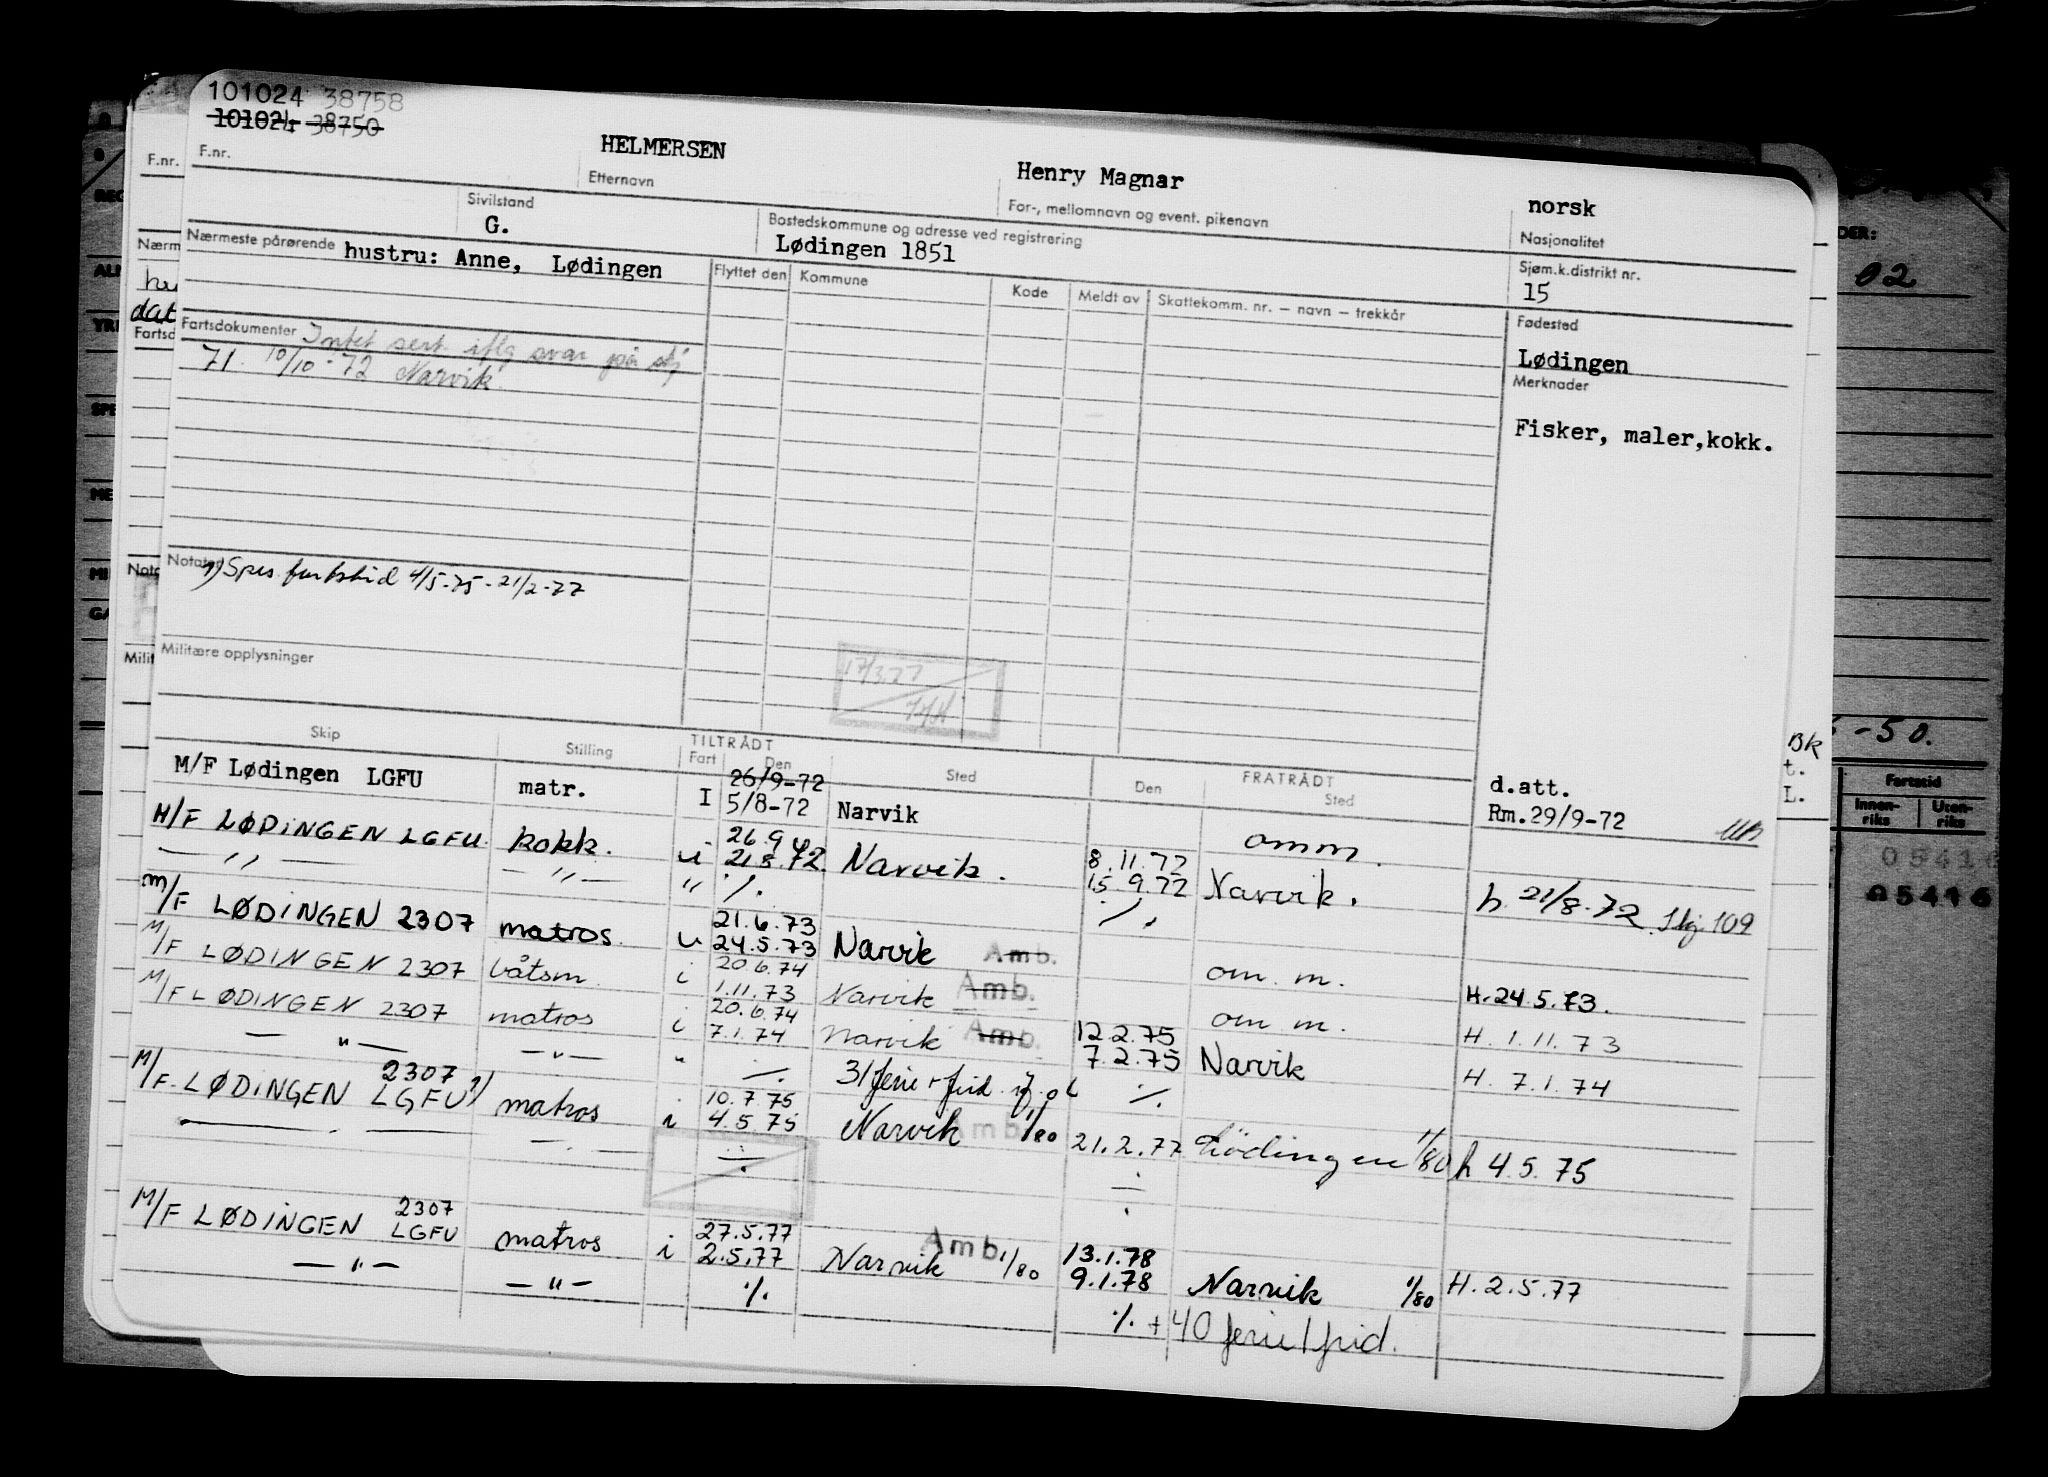 101024 38758
101024 38750
HELMERSEN
Henry Magnar
norsk
F.nr.
F.nr.
Etternavn
For-, mellomnavn og event. pikenavn
Nasjonalitet
Sivilstand
G.
Bostedskommune og adresse ved registrering
Lødingen 1851
Sjøm.k.distrikt nr.
15
Nærm
Nærmeste pårørende hustru: Anne, Lødingen
Flyttet den
Kommune
Kode
Meldt av
Skattekomm. nr. – navn – trekkår
Fødested
Lødingen
dat
Fartsdokumenter Intet sert iflg svar på skj
71. 10/10-72 Narvik
Merknader
Fisker, maler,kokk.
02
Notater
1) Spes fartstid 4/5-75-21/2-77
Militære opplysninger
17/3.77
-50.
Bk
t.
L.
Fartstid
Innen-
riks
Uten-
riks
05416
05416
Skip
Stilling
TILTRÅDT
Fart
Den
Sted
FRATRÅDT
Den
Sted
M/F Lødingen LGFU matr. I 26/9-72
5/8-72 Narvik d.att.
Rm.29/9-72
M/F LØDINGEN LGFU. kokk. i 26.9.72
21.8.72. Narvik. 8.11.72
15.9.72 omm.
Narvik. h 21/8-72 Skj 109
— " — — " — " ./. ./.
M/F LØDINGEN 2307 matros. u 21.6.73
24.5.73 Narvik Amb. om. m. H.24.5.73.
M/F LØDINGEN 2307 båtsm. i 20.6.74
1.11.73 Narvik Amb. om m. H. 1.11.73
M/F LØDINGEN 2307 matros i 20.6.74
7.1.74 Narvik Amb. 12.2.75
7.2.75 Narvik H. 7.1.74
— " — — " — " ./. 31 ferie + frid. ./.
M/F. LØDINGEN 2307
LGFU 1) matros i 10.7.75
4.5.75 Narvik Amb. 1/80 21.2.77 Lödingen 1/80 h 4.5.75
M/F LØDINGEN 2307
LGFU matros i 27.5.77
2.5.77 Narvik Amb. 1/80 13.1.78
9.1.78 Narvik 1/80 H.2.5.77
— " — — " — ./. ./. + 40 ferie/frid.